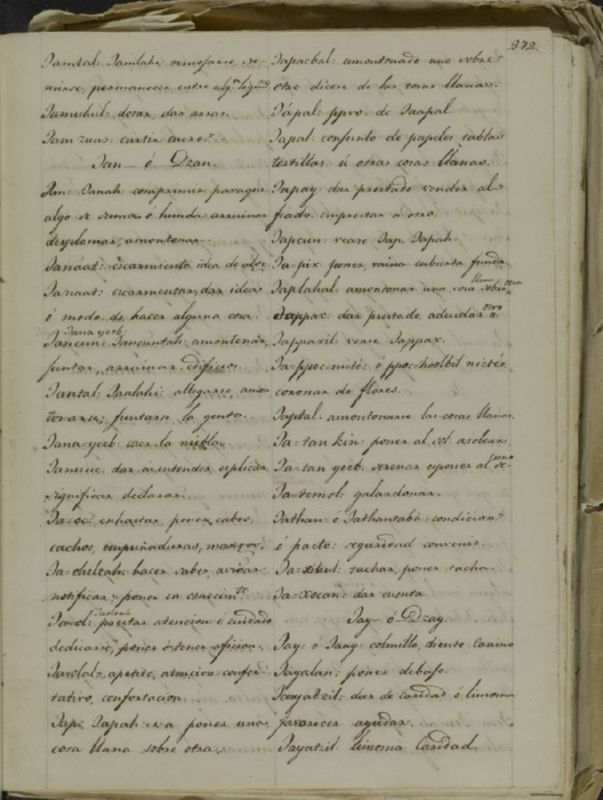 272.
Jamtal: Jamlahi: remojarse, re-
mirse, permanecer entre algn liquid
Jamchul: dorar, dar
Jam zuus: curtir cueros
Jan ó Dzan.
Jan: Janah: comprimir paraque
algo se suma ó hunda: arruinar
desplomar, amontonar
Janaat: escarmiento idea de algo
Janaat: escarmentar, dar idea
ó modo de hacer alguna cosa.
Jana yeeb
Jancun: Jancuntah: amontonar,
juntar, arruinar edificios
Jantal: Janlahi: allegarse amon
tonarse; juntarse la gente.
Jana-yeeb: caer la niebla
dar a entender, esplicar
significar declarar.
Ja-oc: enhastar, poner cabos,
cachos, empuñaduras, mangos.
Ja-ohelzah: hacer saber, avisar
notificar poner en conocimto
Jaolah
Jaol: prestar atencion ó cuidado
dedicarse, poner ó tener aficion.
Jaolal: apetito, atencion confor
tativo, confortacion.
Jap: Japah: poner una
cosa llana sobre otra.
Japacbal: amontonado uno sobre
otro dicese de las cosas llanas.
Jápal: ppro. de Jaapal.
Japal: conjunto de papeles tablas
tortillas ú otras cosas llanas.
Japay: dar prestado vender al
fiado emprestar á otro.
Japcun: vease Jap. Japah.
Ja-pix: poner, vaina cubierta funda.
Japlahal: amontonar una cosa llana sobre otra
Jappax: dar prestado, adeudar á otro
Jappaxil: vease Jappax.
Ja-ppoc-nicté: ó ppoc-hoolbil nicté:
coronar de flores.
Japtal: amontonarse las cosas llanas.
Ja-tan kin: poner al sol asolear.
Ja-tan yeeb: serenar esponer al sereno
Ja-temob: galardonar.
Jathan: ó Jathantabá: condicion
ó pacto: seguridad convenio.
tachar, poner tacha.
Ja-xocan: dar cuenta.
Jay ó Dzay
Jay: ó Jaay: colmillo, diente canino
Jayalan: poner debajo.
Jayatzil: dar de caridad ó limosna
favorecer ayudar.
Jayatzil: limosna Caridad.